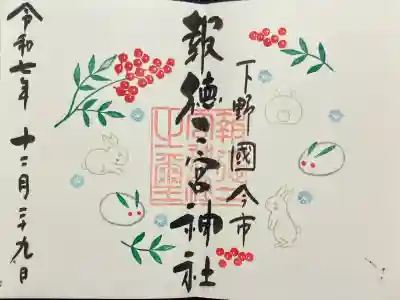 下野國今市
報徳二宮神社
令和七年十二月二十九日